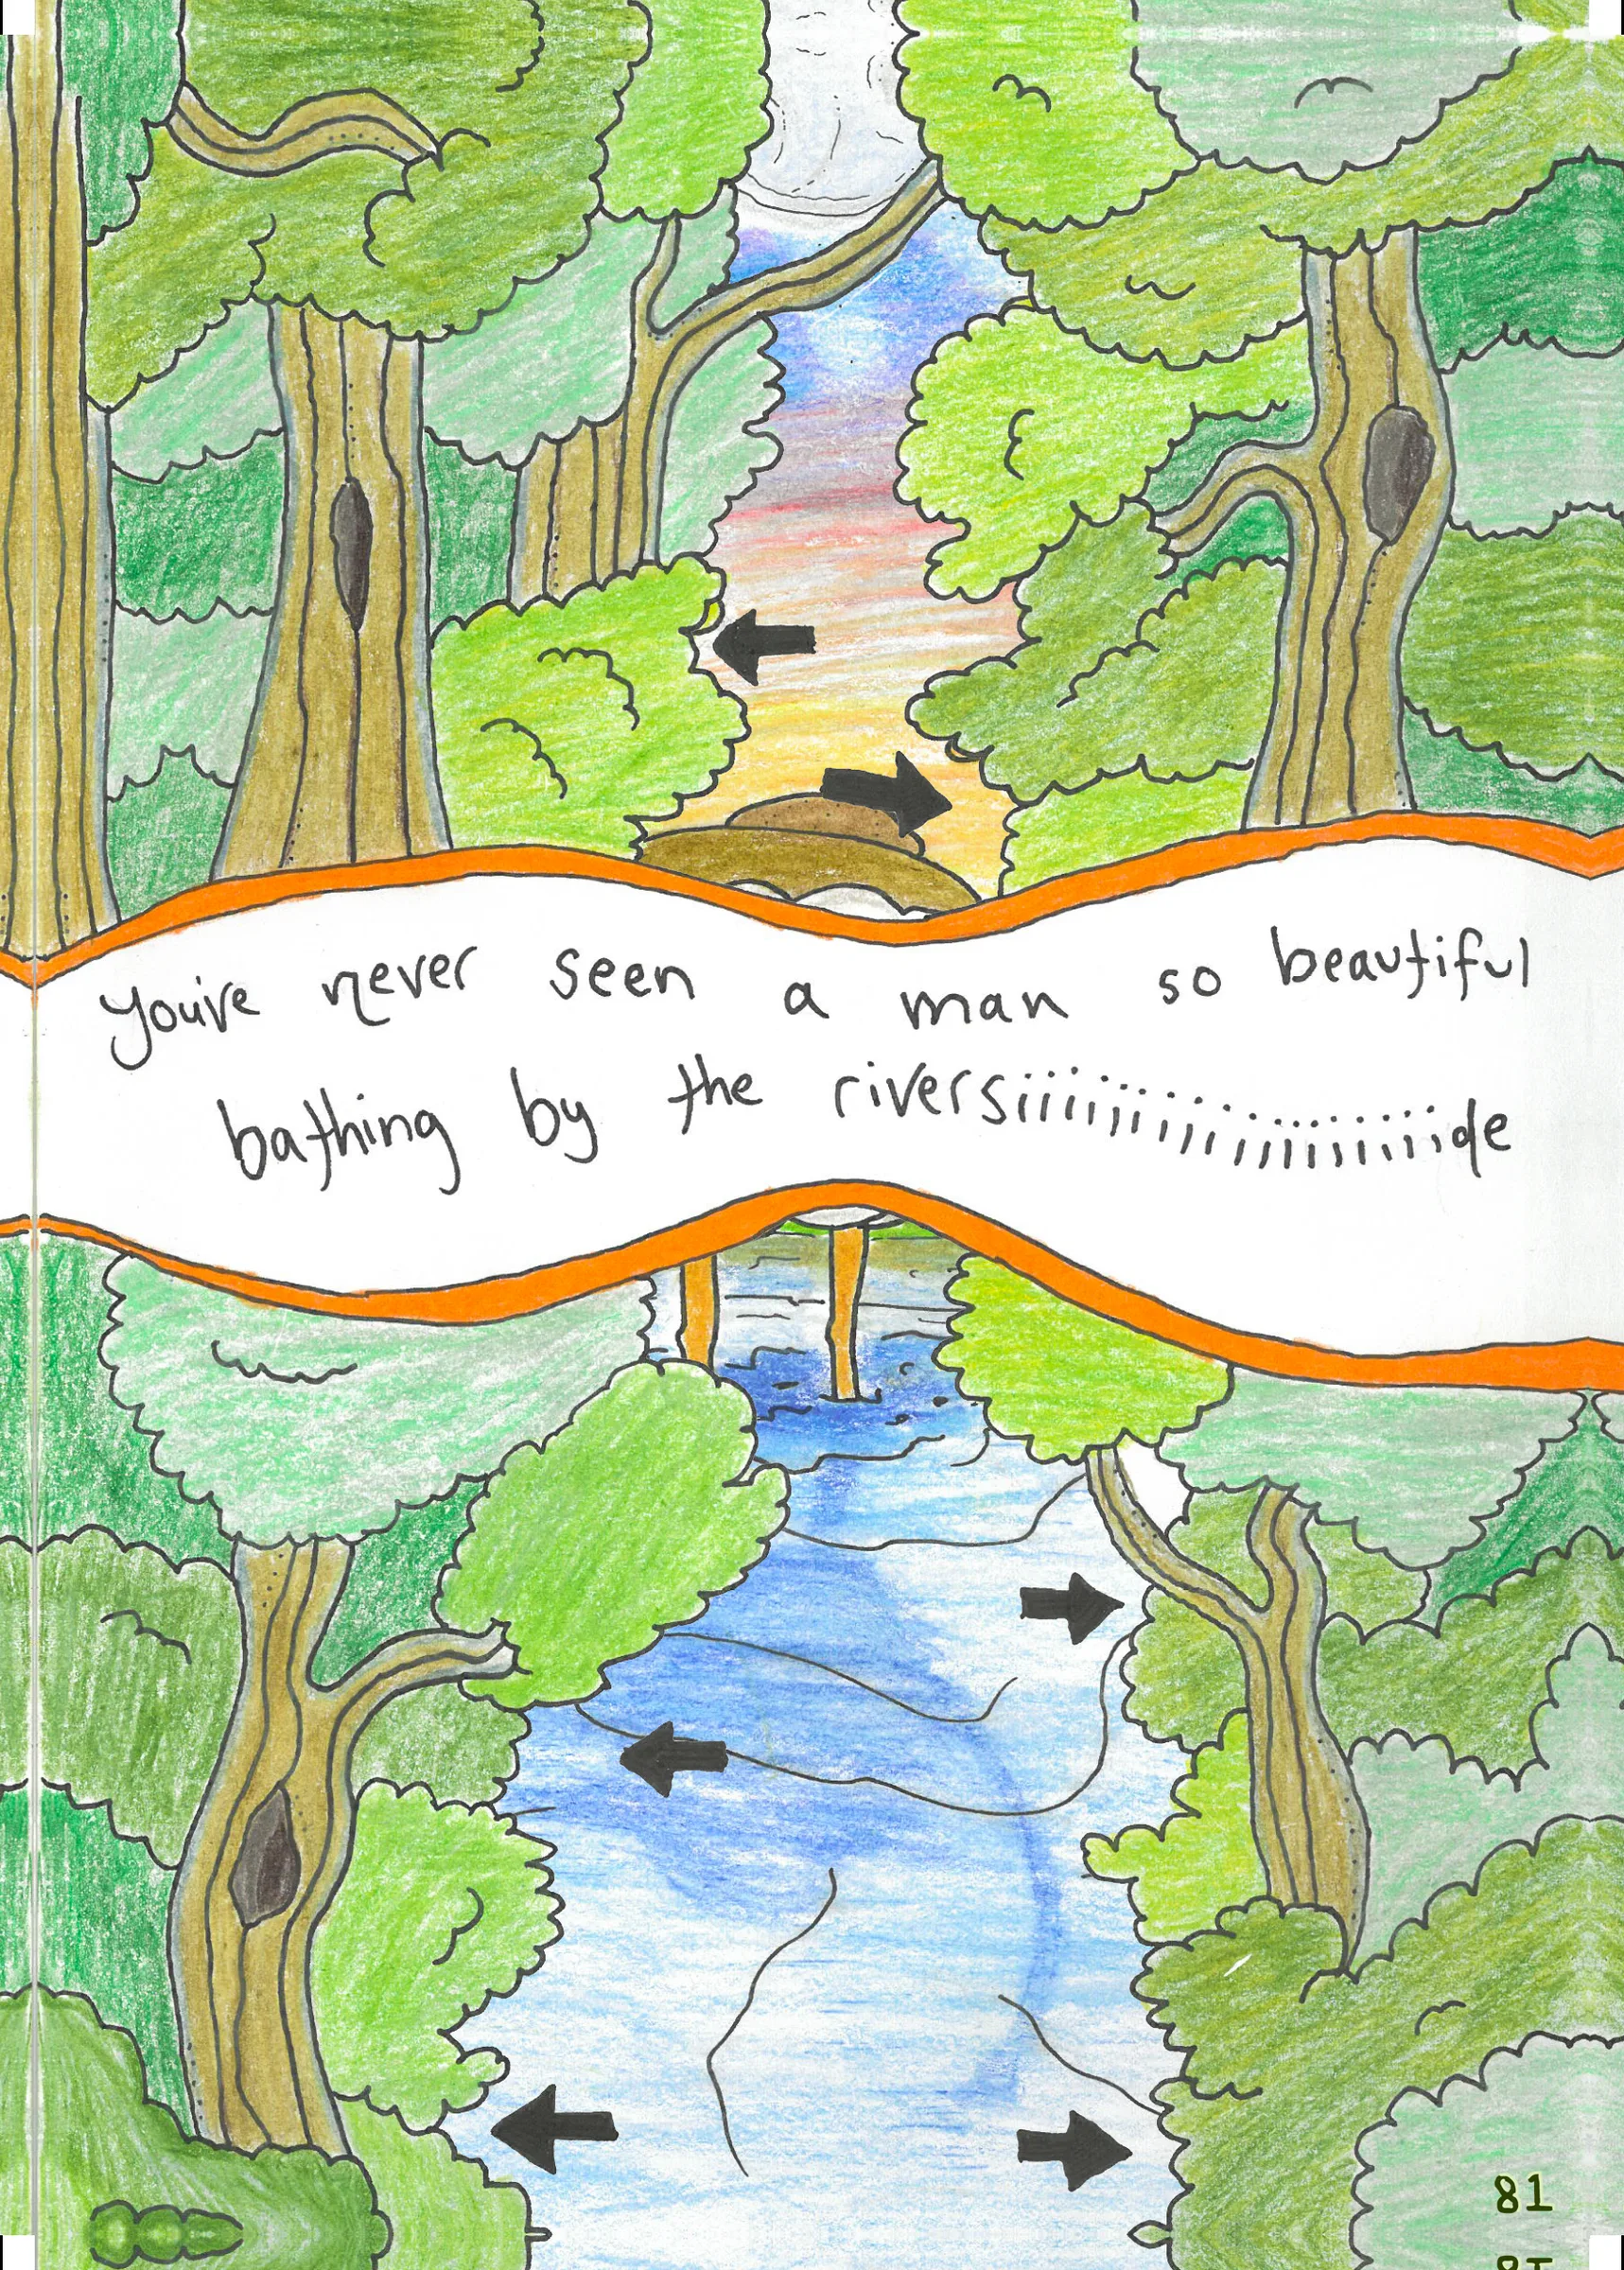 you've never seen a man so beautiful
bathing by the riversiiiiiiiiiiiiiiiiiiide
81